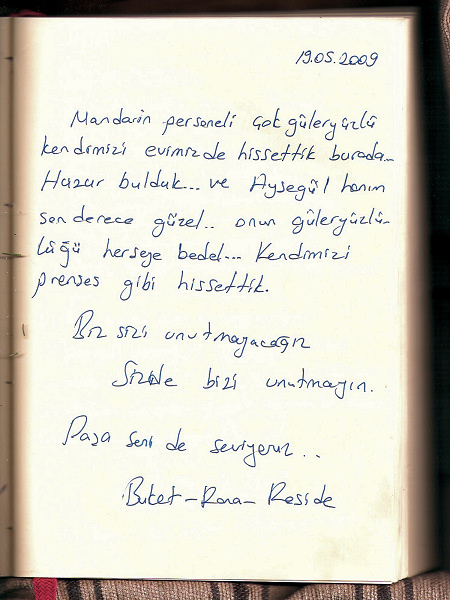 19.05.2009
Mandarin personeli çok güleryüzlü
kendimizi evimizde hissettik burada...
Huzur bulduk... ve Ayşegül hanım
son derece güzel.. onun güleryüzlü-
lüğü herşeye bedel... Kendimizi
prenses gibi hissettik.
Biz sizi unutmayacağız
Sizde bizi unutmayın.
Paşa seni de seviyoruz..
Buket - Rana - Reside